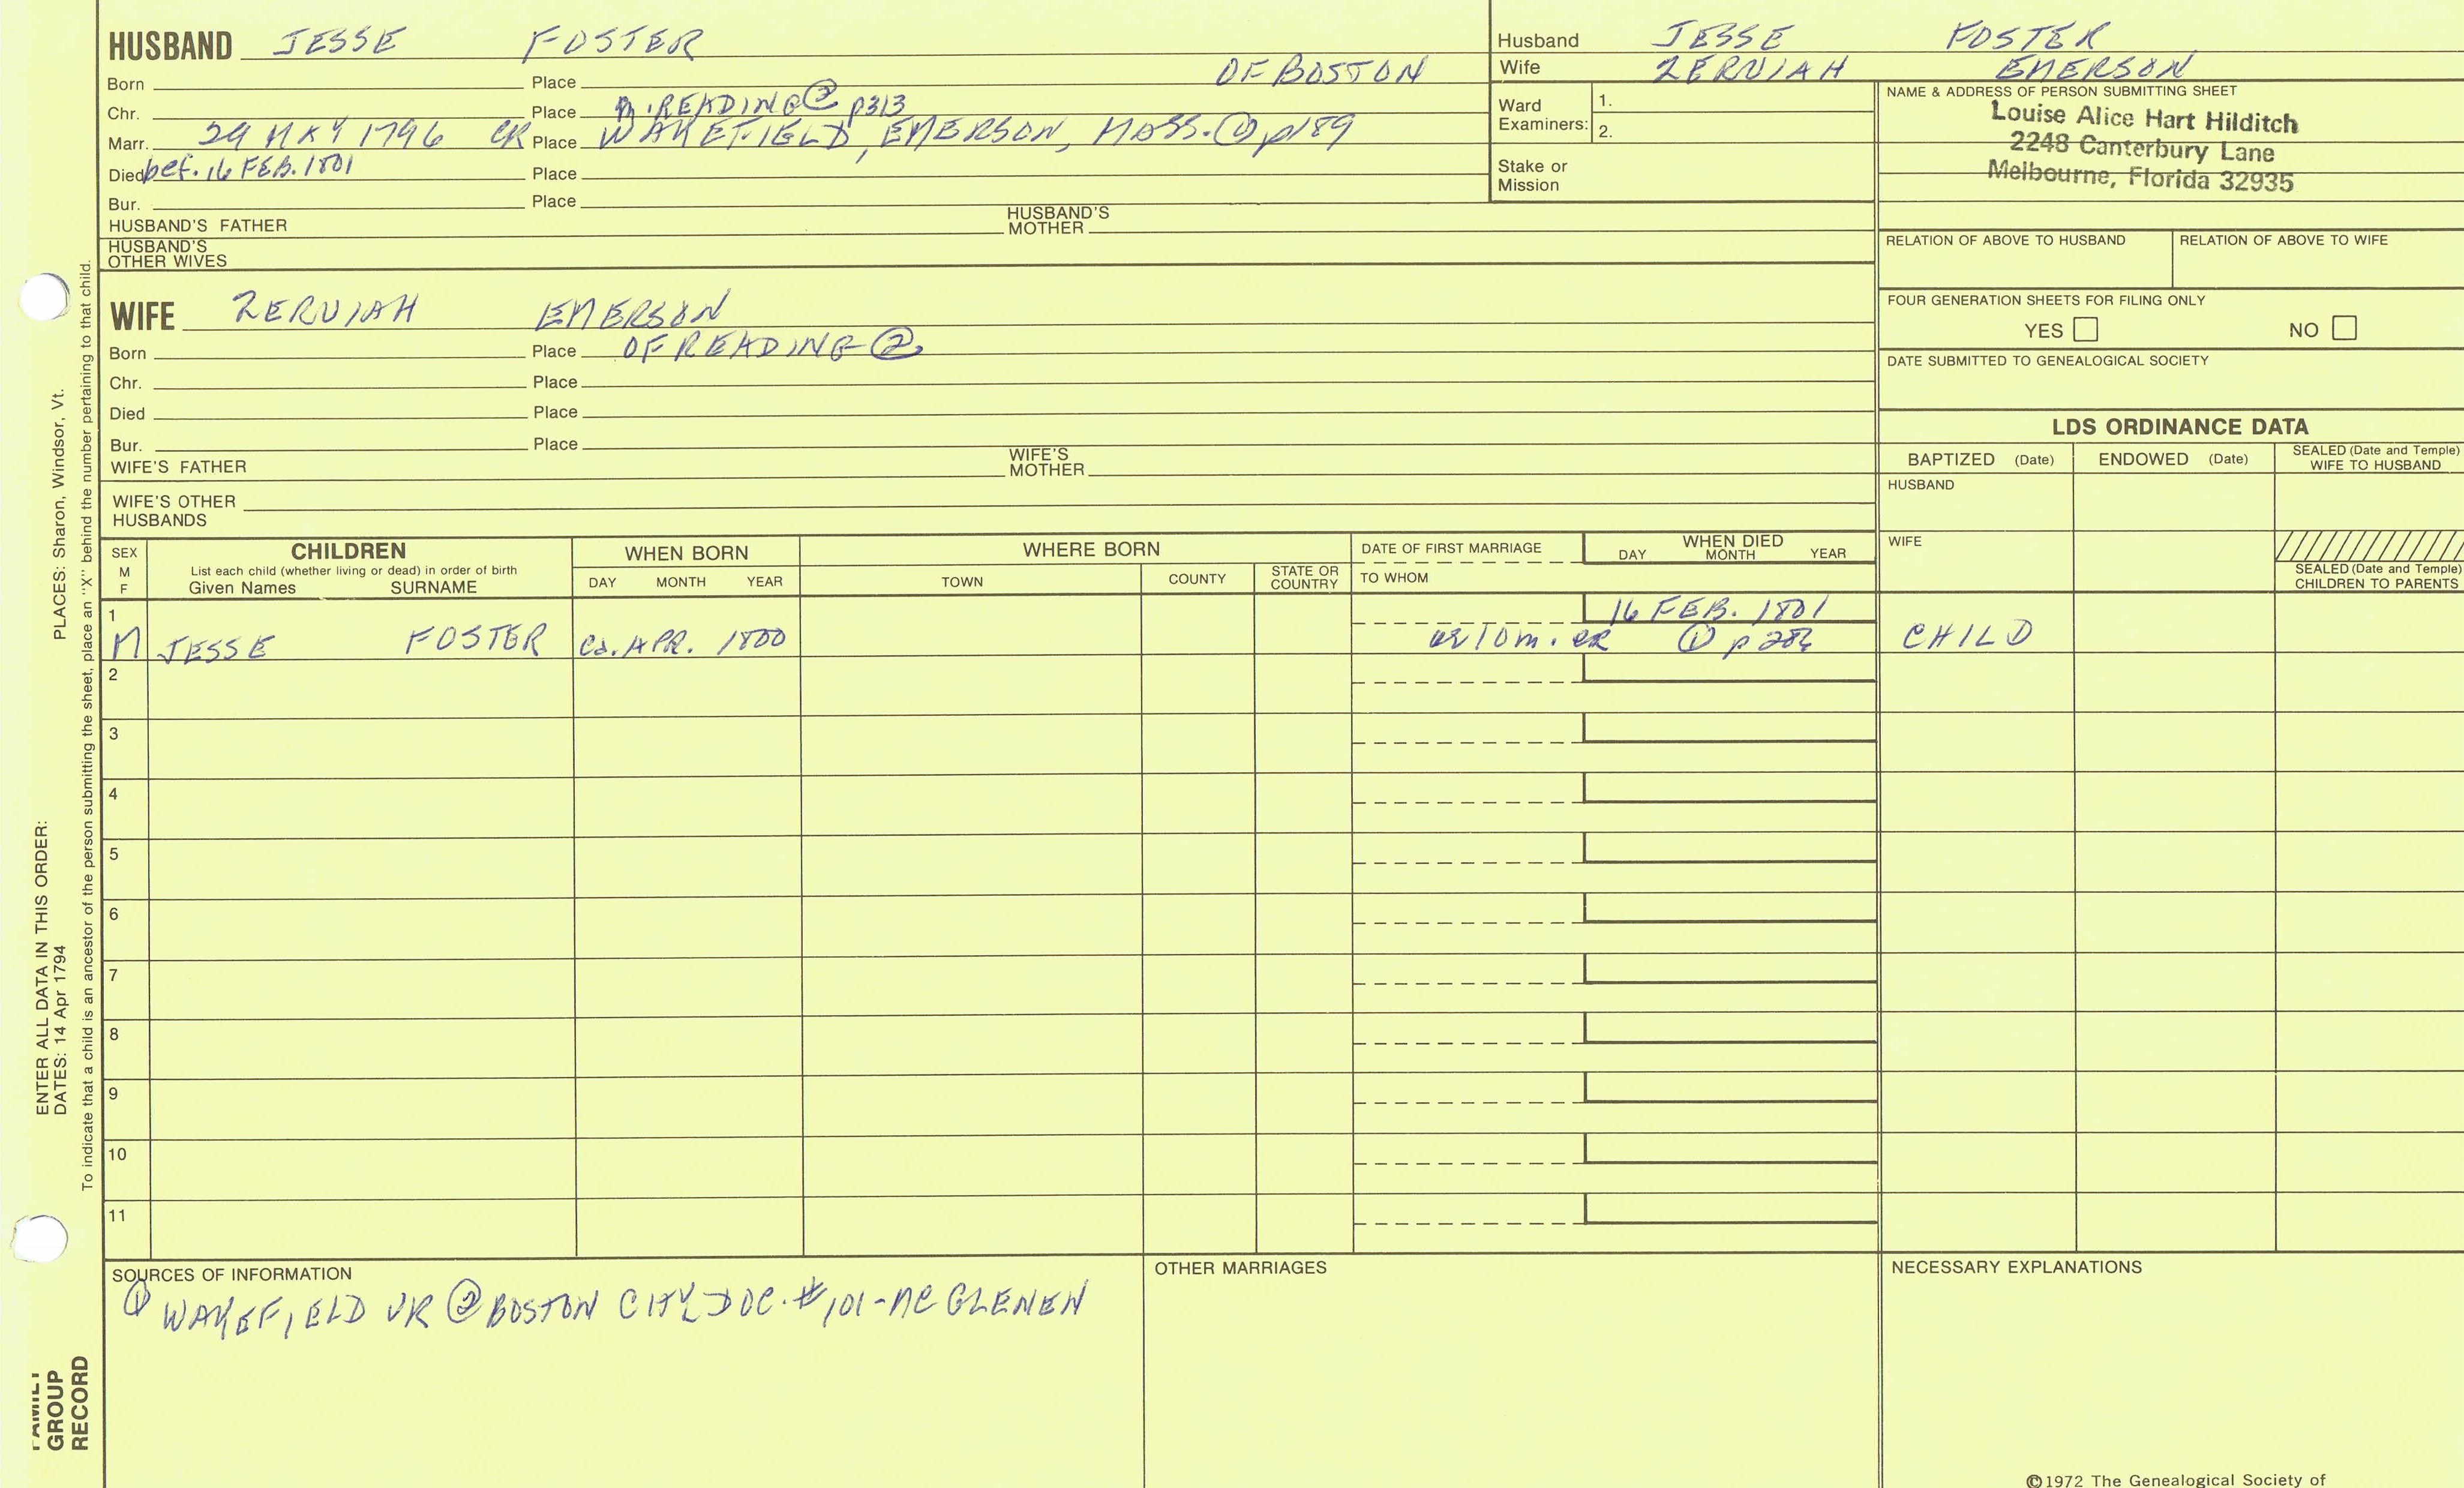 HUSBAND JESSE FOSTER
Born Place OF BOSTON
Chr. Place READING ② p313
Marr. 29 MAY 1796 CR Place WAKEFIELD, EMERSON, MASS. ① p189
Died bef. 16 FEB. 1801 Place
Bur. Place
HUSBAND'S FATHER HUSBAND'S MOTHER
HUSBAND'S OTHER WIVES
Husband JESSE FOSTER
Wife ZERUIAH EMERSON
Ward Examiners: 1.
2.
Stake or Mission
NAME & ADDRESS OF PERSON SUBMITTING SHEET
Louise Alice Hart Hilditch
2248 Canterbury Lane
Melbourne, Florida 32935
RELATION OF ABOVE TO HUSBAND RELATION OF ABOVE TO WIFE
FOUR GENERATION SHEETS FOR FILING ONLY
YES NO
DATE SUBMITTED TO GENEALOGICAL SOCIETY
WIFE ZERUIAH EMERSON
Born Place OF READING ②
Chr. Place
Died Place
Bur. Place
WIFE'S FATHER WIFE'S MOTHER
WIFE'S OTHER HUSBANDS
LDS ORDINANCE DATA
BAPTIZED (Date) ENDOWED (Date) SEALED (Date and Temple) WIFE TO HUSBAND
HUSBAND
WIFE
SEALED (Date and Temple) CHILDREN TO PARENTS
SEX M F
CHILDREN
List each child (whether living or dead) in order of birth
Given Names SURNAME
WHEN BORN
DAY MONTH YEAR
WHERE BORN
TOWN COUNTY STATE OR COUNTRY
DATE OF FIRST MARRIAGE
TO WHOM
WHEN DIED
DAY MONTH YEAR
1 16 FEB. 1801
M JESSE FOSTER Ca. APR. 1800 10 m. CR ① p 282 CHILD
2
3
4
5
6
7
8
9
10
11
SOURCES OF INFORMATION
① WAKEFIELD VR ② BOSTON CITY DOC. #101-MC GLENEN
OTHER MARRIAGES
NECESSARY EXPLANATIONS
©1972 The Genealogical Society of
ENTER ALL DATA IN THIS ORDER:
DATES: 14 Apr 1794 PLACES: Sharon, Windsor, Vt.
To indicate that a child is an ancestor of the person submitting the sheet, place an "X" behind the number pertaining to that child.
FAMILY
GROUP
RECORD